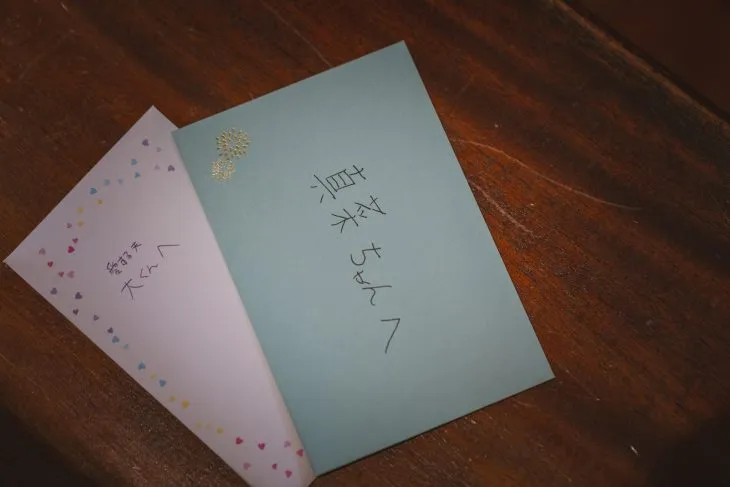 愛する夫
大くんへ
真奈ちゃんへ